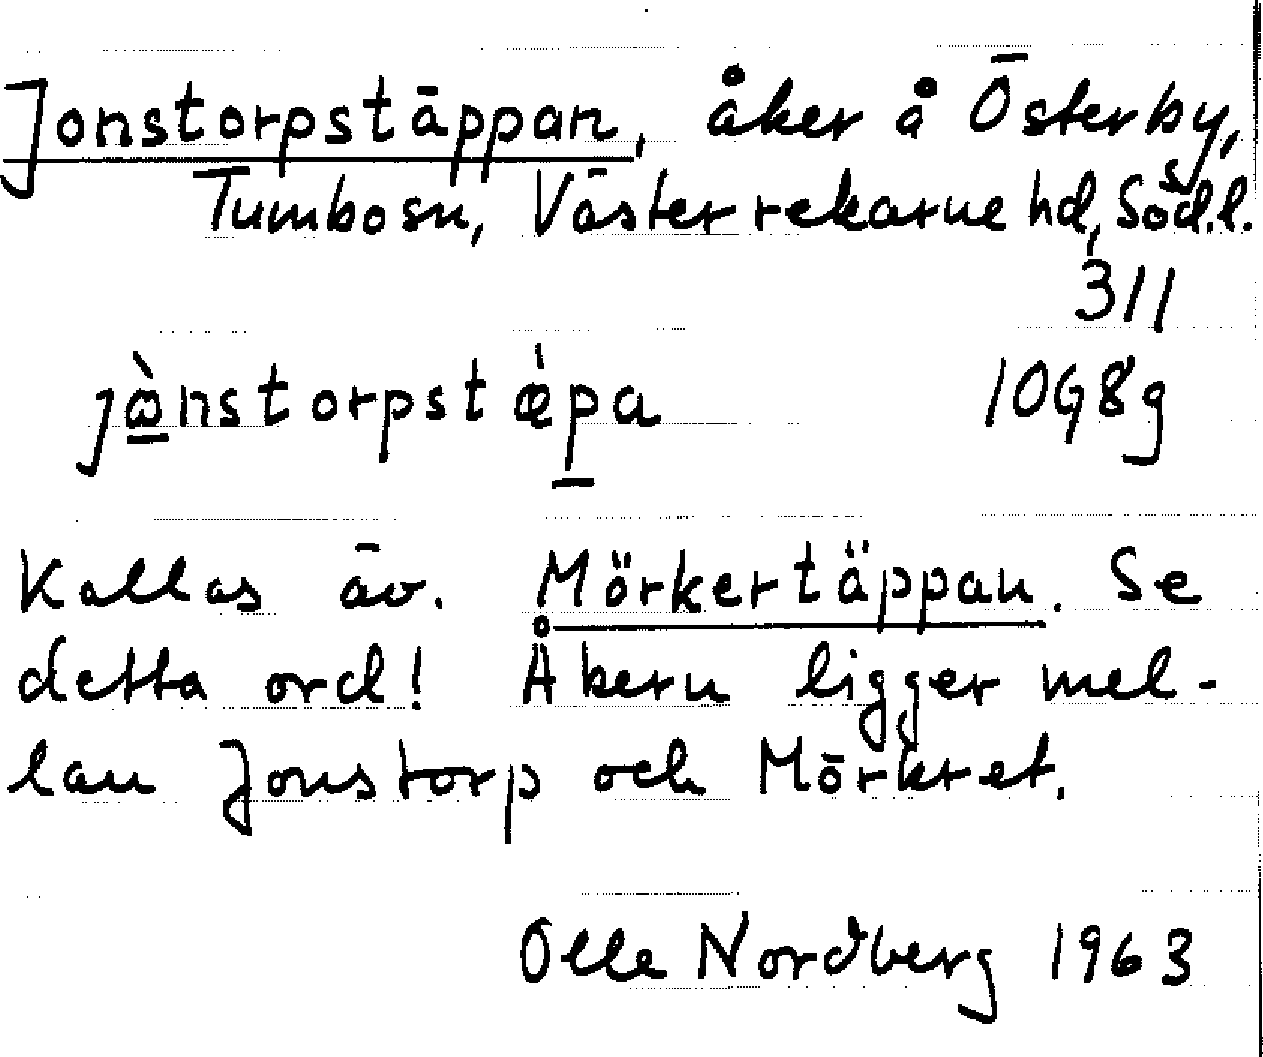 Jonstorpstäppan, åker å Österby,
Tumbo sn, Västerrekarne hd, Söd.l.
311
jὼnstorpstæ̀pa 10G8g
Kallas äv. Mörkertäppan. Se
detta ord! Åkern ligger mel-
lan Jonstorp och Mörkret.
Olle Nordberg 1963